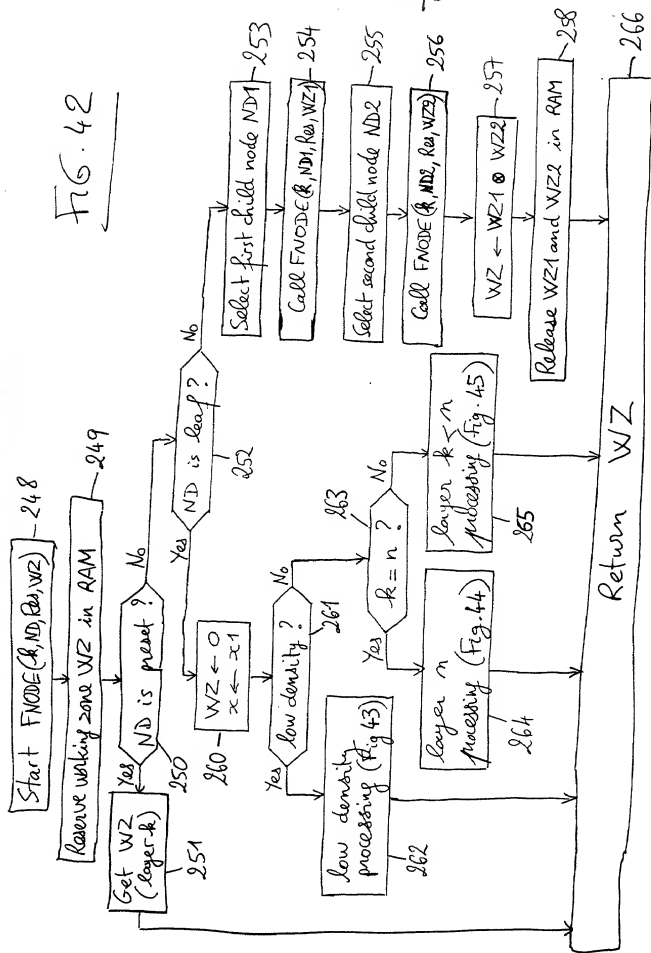 FIG. 42
Start FNODE(k,ND,Res,WZ)
248
Reserve working zone WZ in RAM
249
ND is preset?
250
Yes
No
Get WZ
(layer k)
251
ND is leaf?
252
Yes
No
Select first child node ND1
253
Call FNODE(k,ND1,Res,WZ1)
254
Select second child node ND2
255
Call FNODE(k,ND2,Res,WZ2)
256
WZ ← WZ1 ⊗ WZ2
257
Release WZ1 and WZ2 in RAM
258
WZ ← 0
x ← x1
260
low density?
261
Yes
No
low density
processing (Fig 43)
262
k = n ?
263
Yes
No
layer n
processing (Fig. 44)
264
layer k < n
processing (Fig. 45)
265
Return WZ
266